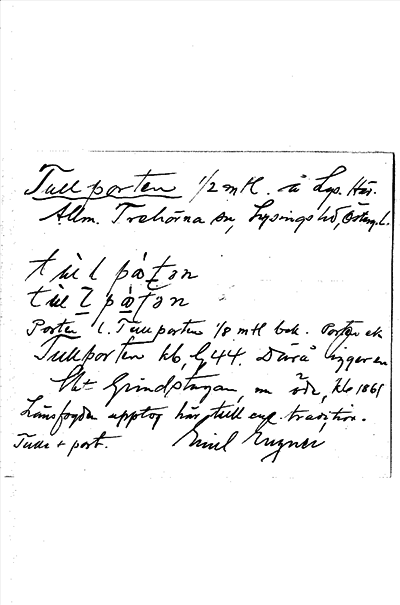 Tullporten 1/2 mtl. å Lys. Här.
Allm. Trehörna sn, Lysings hd, Österg. l.
tùl l pò̤ţən
tùl l pò̤ţən
Porten l. Tullporten 1/8 mtl bok. Porten ek
Tullporten kb, lj 44. Därå ligger en
lht Grindstugan, nu öde, kb 1861
Länsfogden upptog här tull enl. tradition.
Tull + port. Emil Engner